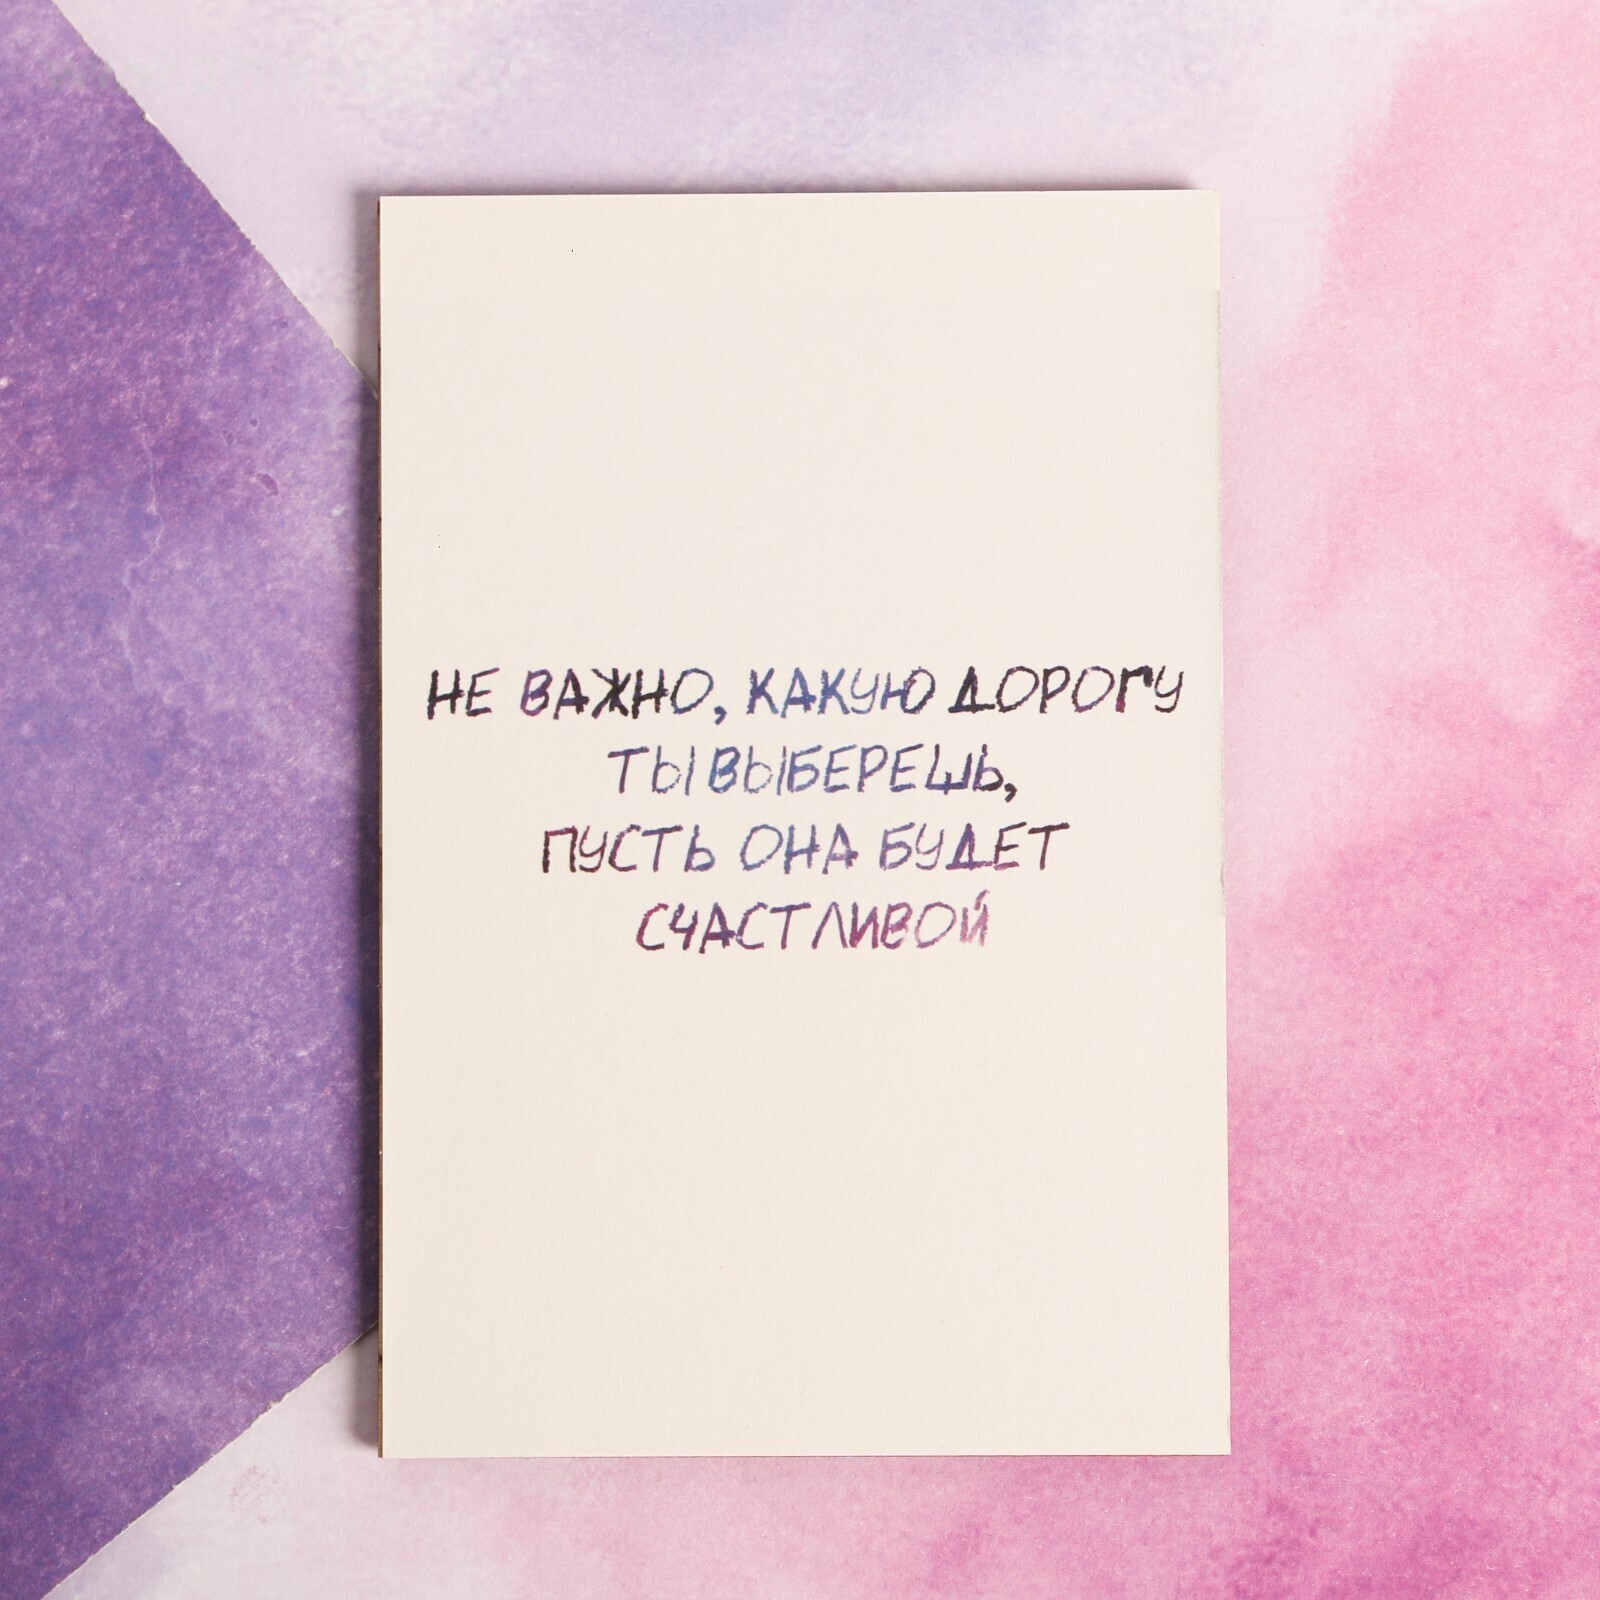 НЕ ВАЖНО, КАКУЮ ДОРОГУ
ТЫ ВЫБЕРЕШЬ,
ПУСТЬ ОНА БУДЕТ
СЧАСТЛИВОЙ